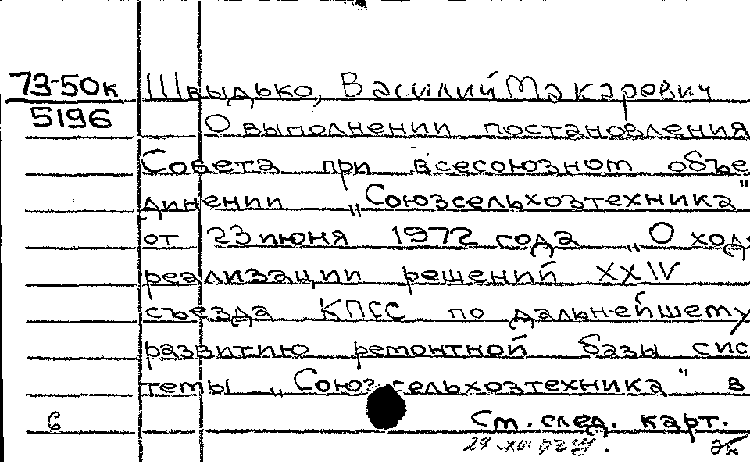 73-50к Швыдько, Василий Макарович
5196 О выполнении постановления
Совета при всесоюзном объе
динении "Союзсельхозтехника"
от 23 июня 1972 года "О ходе
реализации решений XXIV
съезда КПСС по дальнейшему
развитию ремонтной базы сис
темы "Союзсельхозтехника" в
6 См. след. карт.